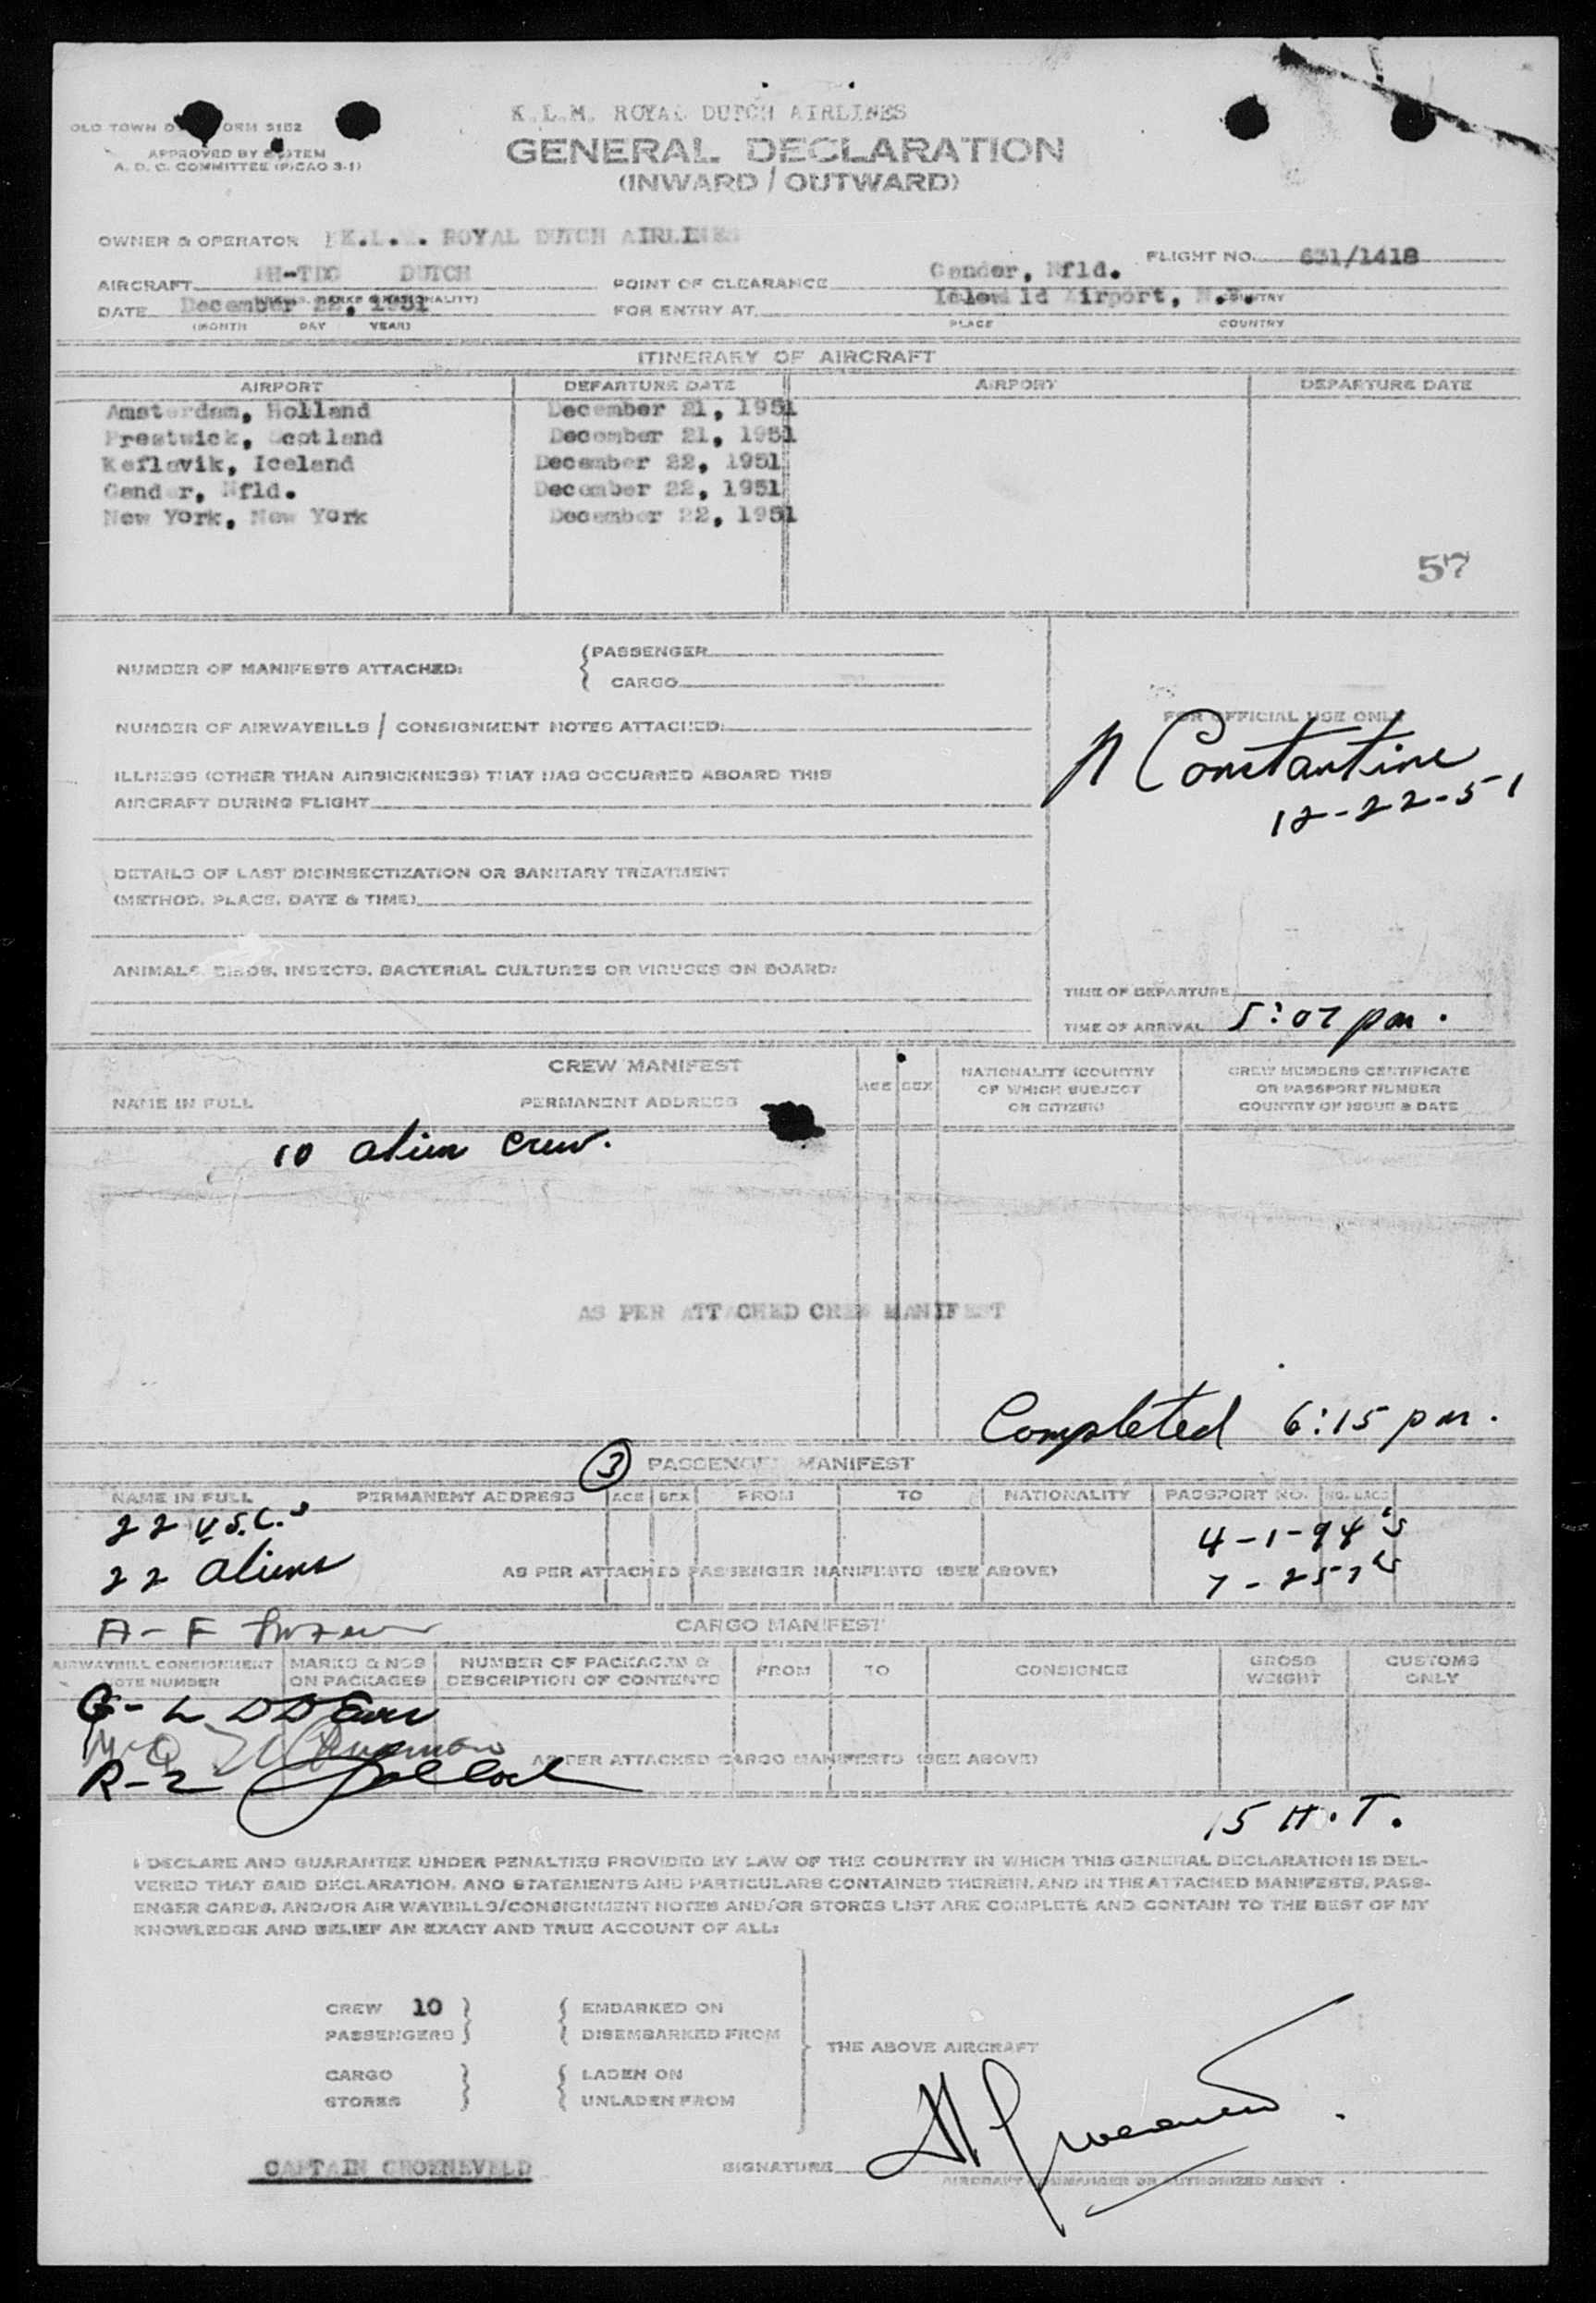 K.L.M. ROYAL DUTCH AIRLINES
OLD TOWN FORM 5182
APPROVED BY SYSTEM
A. D. C. COMMITTEE (PICAO 3-1)
GENERAL DECLARATION
(INWARD / OUTWARD)
OWNER & OPERATOR K.L.M. ROYAL DUTCH AIRLINES
FLIGHT NO. 631/1418
AIRCRAFT DUTCH
POINT OF CLEARANCE Gander, Nfld.
DATE December 22, 1951
FOR ENTRY AT Idlewild Airport, N.Y.
(MONTH DAY YEAR)
PLACE COUNTRY
ITINERARY OF AIRCRAFT
AIRPORT DEPARTURE DATE AIRPORT DEPARTURE DATE
Amsterdam, Holland December 21, 1951
Prestwick, Scotland December 21, 1951
Keflavik, Iceland December 22, 1951
Gander, Nfld. December 22, 1951
New York, New York December 22, 1951
57
NUMBER OF MANIFESTS ATTACHED: PASSENGER
CARGO
FOR OFFICIAL USE ONLY
NUMBER OF AIRWAYBILLS / CONSIGNMENT NOTES ATTACHED:
Constantine
12-22-51
ILLNESS (OTHER THAN AIRSICKNESS) THAT HAS OCCURRED ABOARD THIS
AIRCRAFT DURING FLIGHT
DETAILS OF LAST DISINSECTIZATION OR SANITARY TREATMENT
(METHOD, PLACE, DATE & TIME)
ANIMALS, BIRDS, INSECTS, BACTERIAL CULTURES OR VIRUSES ON BOARD:
TIME OF DEPARTURE
TIME OF ARRIVAL 5:07 pm.
CREW MANIFEST
NAME IN FULL PERMANENT ADDRESS AGE SEX
NATIONALITY (COUNTRY
OF WHICH SUBJECT
OR CITIZEN)
CREW MEMBERS CERTIFICATE
OR PASSPORT NUMBER
COUNTRY OF ISSUE & DATE
10 alien crew.
AS PER ATTACHED CREW MANIFEST
Completed 6:15 pm.
3 PASSENGER MANIFEST
NAME IN FULL PERMANENT ADDRESS AGE SEX FROM TO NATIONALITY PASSPORT NO. NO. BAGS
22 U.S.C.s
4-1-94's
22 aliens
AS PER ATTACHED PASSENGER MANIFESTS (SEE ABOVE)
7-257's
A-F
CARGO MANIFEST
AIRWAYBILL CONSIGNMENT
NOTE NUMBER
MARKS & NOS
ON PACKAGES
NUMBER OF PACKAGES &
DESCRIPTION OF CONTENTS
FROM TO CONSIGNEE
GROSS
WEIGHT
CUSTOMS
ONLY
G-L
AS PER ATTACHED CARGO MANIFESTS (SEE ABOVE)
R-Z Pollock
15 H.T.
I DECLARE AND GUARANTEE UNDER PENALTIES PROVIDED BY LAW OF THE COUNTRY IN WHICH THIS GENERAL DECLARATION IS DEL-
VERED THAT SAID DECLARATION, AND STATEMENTS AND PARTICULARS CONTAINED THEREIN, AND IN THE ATTACHED MANIFESTS, PASS-
ENGER CARDS, AND/OR AIR WAYBILLS/CONSIGNMENT NOTES AND/OR STORES LIST ARE COMPLETE AND CONTAIN TO THE BEST OF MY
KNOWLEDGE AND BELIEF AN EXACT AND TRUE ACCOUNT OF ALL:
CREW 10 EMBARKED ON
PASSENGERS DISEMBARKED FROM
THE ABOVE AIRCRAFT
CARGO LADEN ON
STORES UNLADEN FROM
CAPTAIN GROENEVELD
SIGNATURE
AIRCRAFT COMMANDER OR AUTHORIZED AGENT